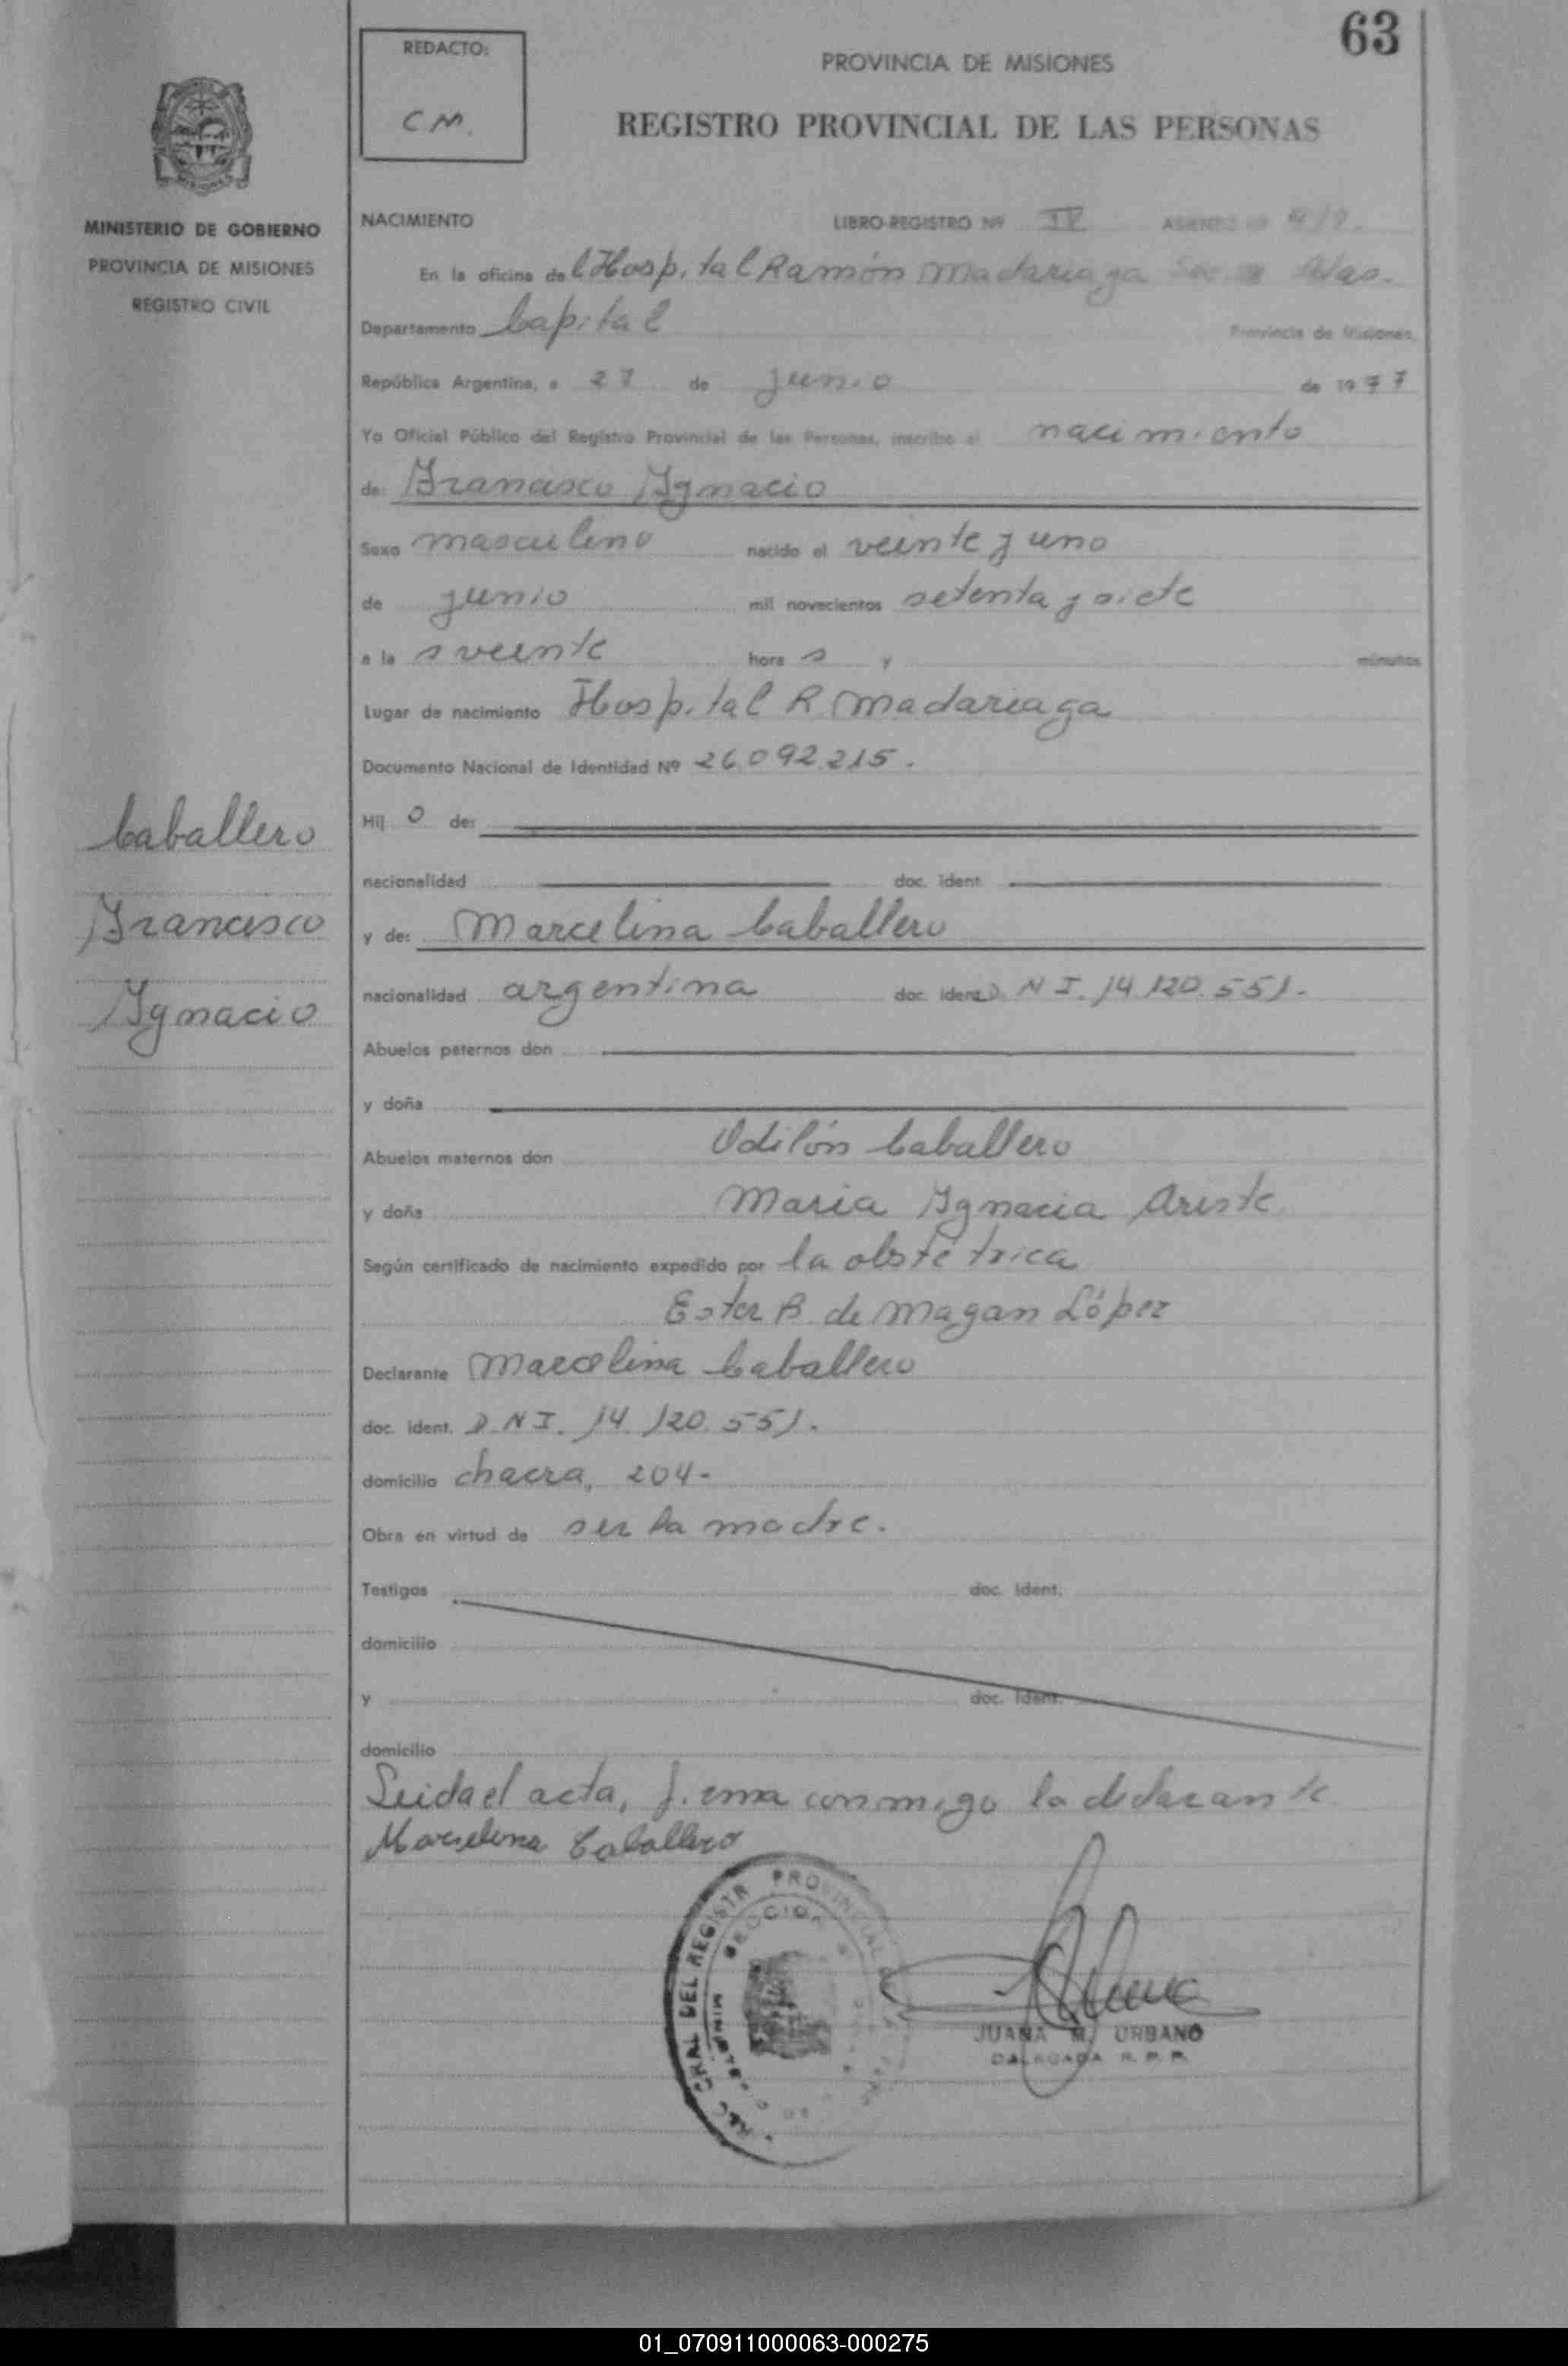 63
REDACTO:
C M.
PROVINCIA DE MISIONES
REGISTRO PROVINCIAL DE LAS PERSONAS
MINISTERIO DE GOBIERNO
PROVINCIA DE MISIONES
REGISTRO CIVIL
NACIMIENTO LIBRO-REGISTRO Nº IV ASIENTO Nº
En la oficina del Hospital Ramón Madariaga
Departamento Capital Provincia de Misiones,
República Argentina, a 27 de junio de 1977
Yo Oficial Público del Registro Provincial de las Personas, inscribo el nacimiento
de: Francisco Ygnacio
Sexo masculino nacido el veinte y uno
de junio mil novecientos setenta y siete
a la s veinte hora s y minutos
Lugar de nacimiento Hospital R. Madariaga
Documento Nacional de Identidad Nº 26.092.215.
Caballero
Francisco
Ygnacio
Hij o de:
nacionalidad doc. ident.
y de: Marcelina Caballero
nacionalidad argentina doc. ident. D. N I. 14.120.551.
Abuelos paternos don
y doña
Abuelos maternos don Odilón Caballero
y doña Maria Ygnacia Ariste
Según certificado de nacimiento expedido por la obstétrica
Ester B. de Magan López
Declarante Marcelina Caballero
doc. ident. D. N I. 14.120.551.
domicilio chacra, 204-
Obra en virtud de ser la madre.
Testigos doc. ident.
domicilio
y doc. ident.
domicilio
Leida el acta, firma conmigo la declarante
Marcelina Caballero
GRAL DEL REGISTR PROVINCIAL
SECCION
JUANA M. URBANO
DELEGADA R. P. P.
01_070911000063-000275